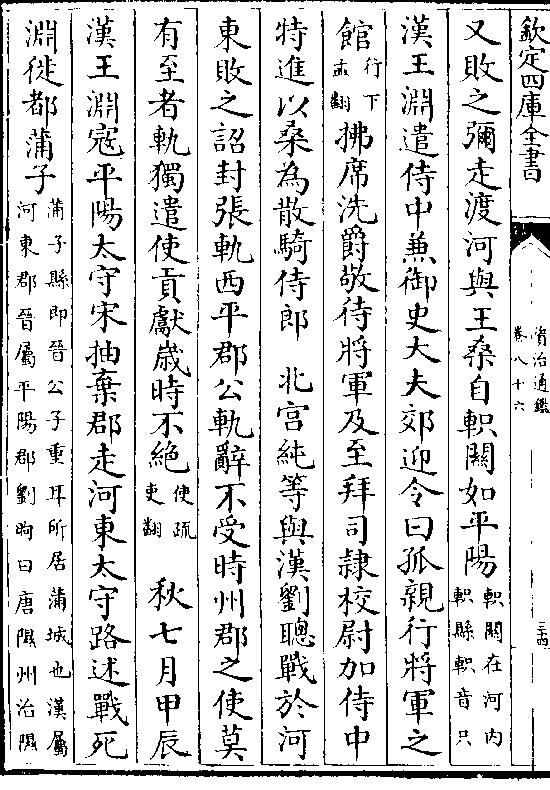 欽定四庫全書
資治通鑑
卷八十六
三四
又敗之彌走渡河與王桑自軹關如平陽軹關在河内
軹縣軹音只
漢王淵遣侍中兼御史大夫郊迎令曰孤親行將軍之
館行下
孟翻拂席洗爵敬待將軍及至拜司隷校尉加侍中
特進以桑為散騎侍郎　北宮純等與漢劉聰戰於河
東敗之詔封張軌西平郡公軌辭不受時州郡之使莫
有至者軌獨遣使貢獻歲時不絶使疏
吏翻　秋七月甲辰
漢王淵寇平陽太守宋抽棄郡走河東太守路述戰死
淵徙都蒲子蒲子縣即晉公子重耳所居蒲城也漢屬
河東郡晉屬平陽郡劉昫曰唐隰州治隰